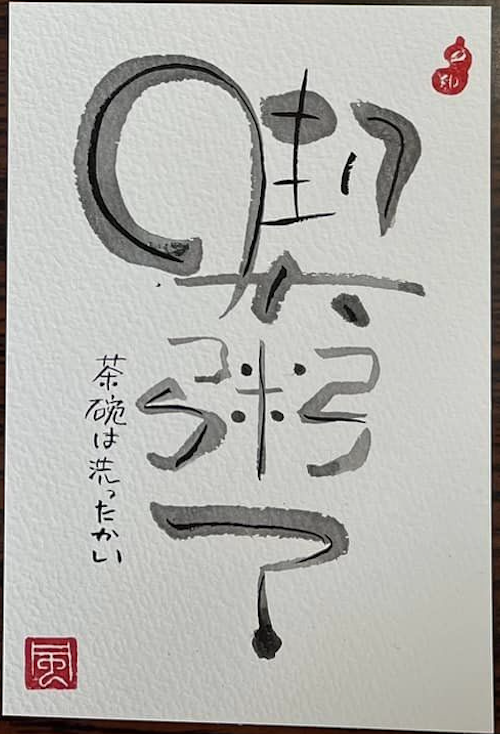 喫粥了
茶碗は洗ったかい
風